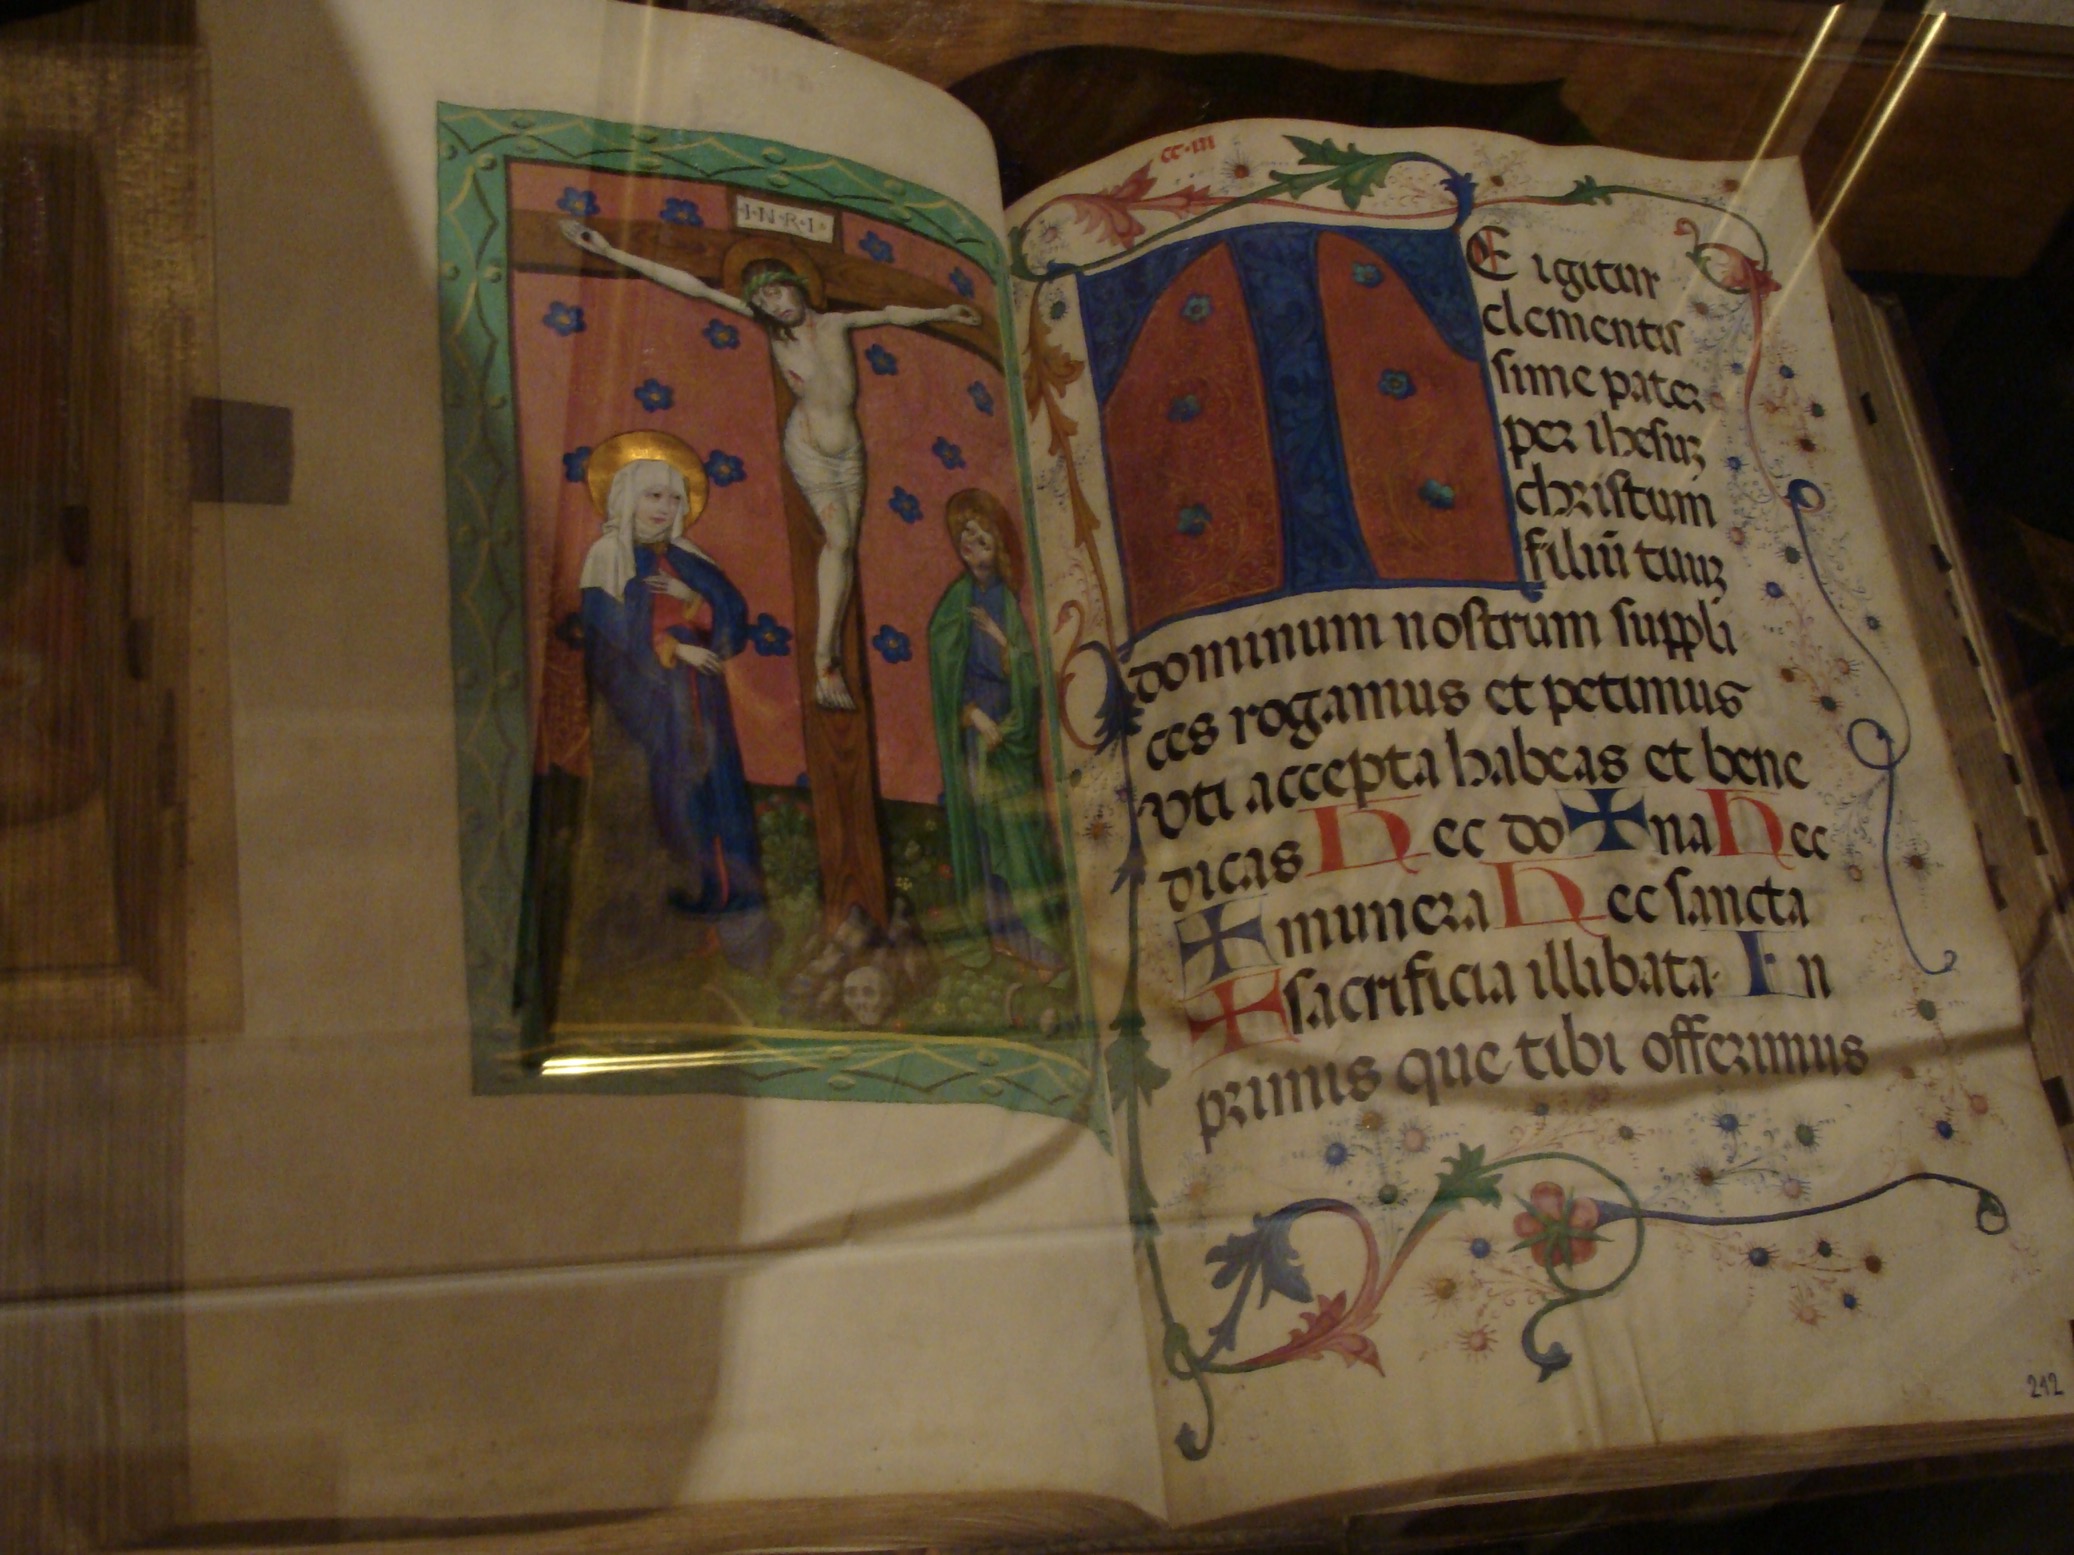 I·N·R·I
cc·iii
TE igitur
clementis
sime pater
per ihesuz
christum
filiū tuuz
dominum nostrum suppli
ces rogamus et petimus
vti accepta habeas et bene
dicas Hec do✠na Hec
✠ munera Hec sancta
✠ sacrificia illibata· In
primis que tibi offerimus
212